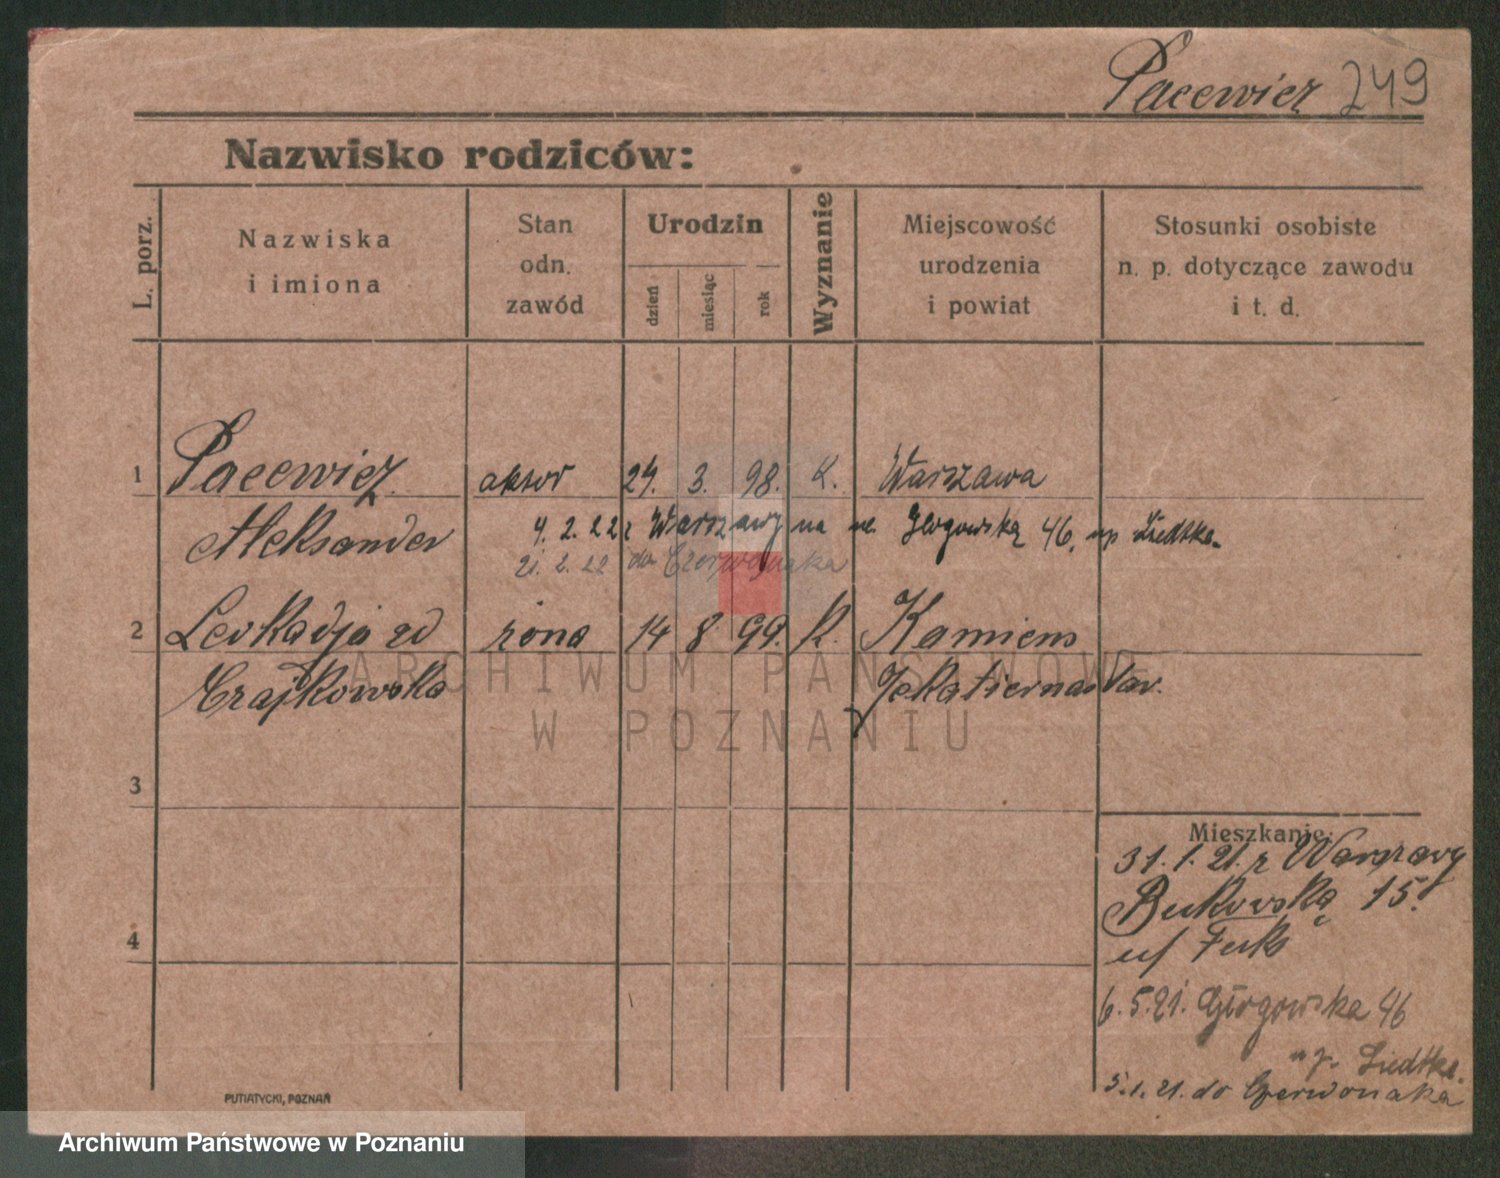 Pacewicz 249
Nazwisko rodziców:
L. porz.
Nazwiska
i imiona
Stan
odn.
zawód
Urodzin
dzień
miesiąc
rok
Wyznanie
Miejscowość
urodzenia
i powiat
Stosunki osobiste
n. p. dotyczące zawodu
i t. d.
1 Pacewicz aktor 24. 3. 98. K. Warszawa
Aleksander 4. 2. 22 z Warszawy na ul. Głogowską 46, up Liedtke.
21. 2. 22 do Czerwonaka
2 Leokadja zd żona 14 8 99. K. Kamiens
Czajkowska Jekatiernosław.
3
Mieszkanie:
31. 1. 21. z Warszawy
Bukowską 15.
4
6. 5. 21. Głogowska 46
Liedtke.
5. 1. 21. do Czerwonaka
PUTIATYCKI, POZNAŃ
ARCHIWUM PAŃSTWOWE
W POZNANIU
Archiwum Państwowe w Poznaniu